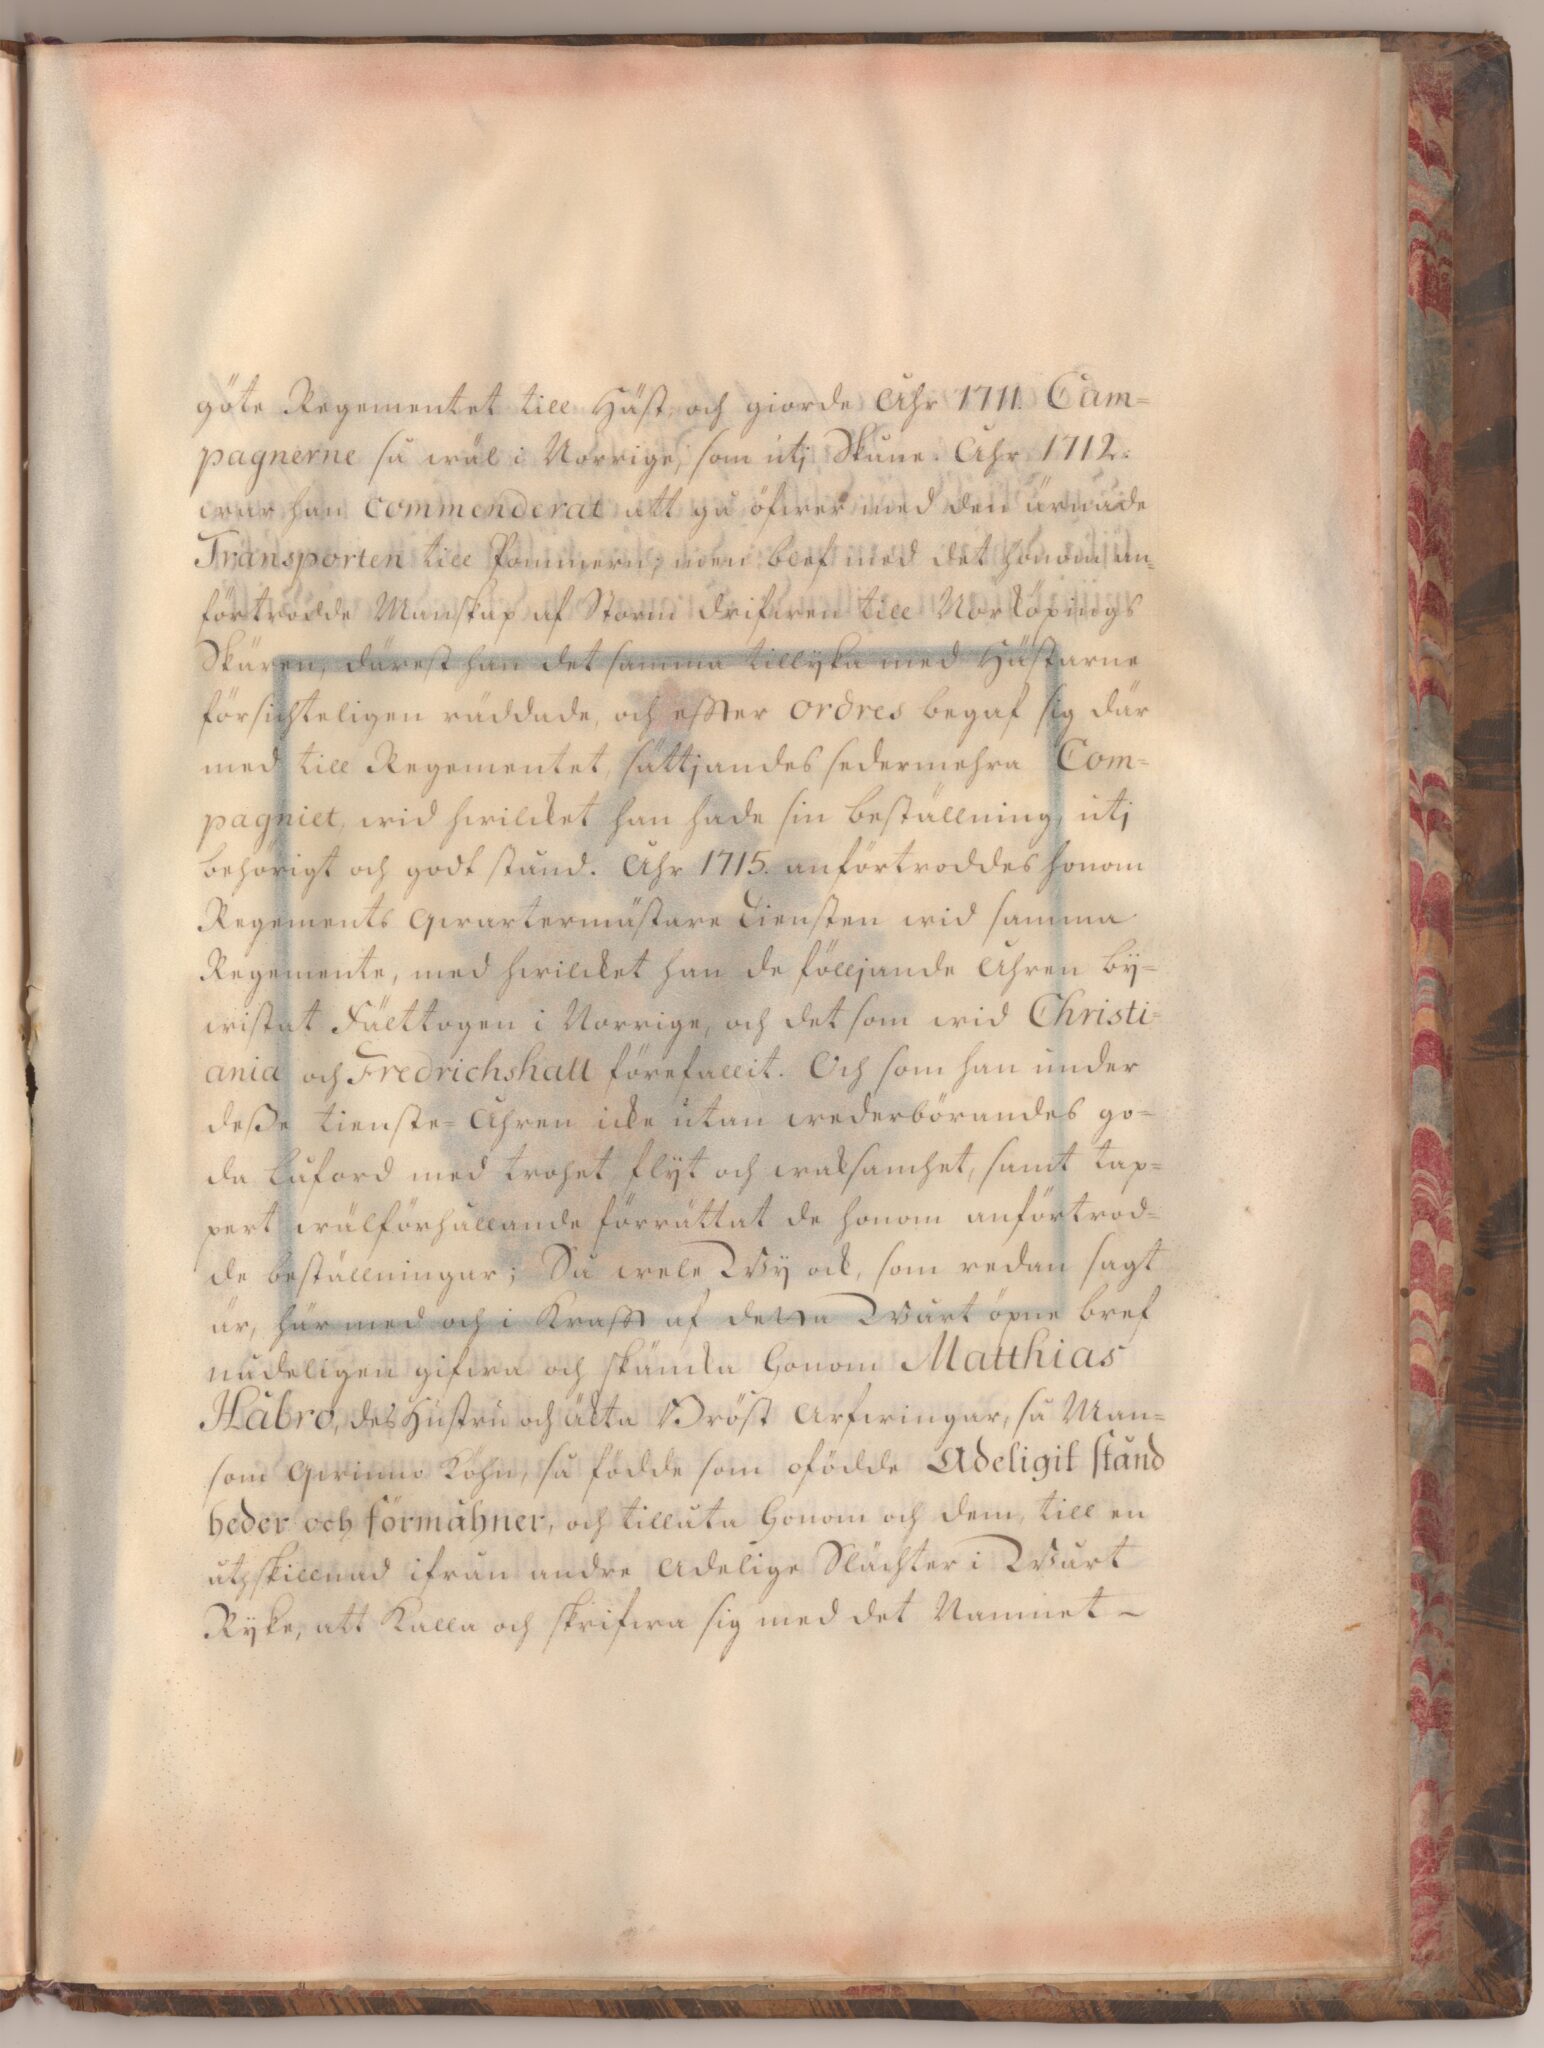 göte Regementet till Häst, och giorde Åhr 1711. Cam=
pagnerne så wäl i Norrige, som utj Skåne. Åhr 1712.
war han commenderat att gå öfwer med den ärnade
Transporten till Pommern; men blef med det honom an=
förtrodde Manskap af Storm drifwen till Norköpings
Skären, därest han det samma tillyka med Hästarne
försichteligen räddade, och effter ordres begaf sig där
med till Regementet, sättjandes sedermehra Com=
pagniet, wid hwilcket han hade sin beställning, utj
behörigt och godt stånd. Åhr 1715. anförtroddes honom
Regements Qwartermästare tiensten wid samma
Regemente, med hwilcket han de följande Åhren by=
wistat Fälttogen i Norrige, och det som wid Christi=
ania och Fredrichshall förefallit. Och som han under
deße tienste=Åhren icke utan wederbörandes go=
da Låford med trohet, flyt och waksamhet, samt tap=
pert wälförhållande förrättat de honom anförtrod=
de beställningar; Så wele Wy ock, som redan sagt
är, här med och i Krafft af detta Wårt öpne bref
nådeligen gifwa och skäncka Honom Matthias
Håbro, des Hustru och äckta Bröst Arfwingar, så Man=
som Qwinno Köhn, så födde som ofödde Adeligit stånd
heder och förmåhner, och tillåta Honom och dem, till en
utskillnad ifrån andre Adelige Slächter i Wårt
Ryke, att Kalla och skrifwa sig med det Namnet –